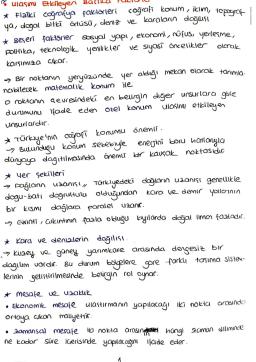 * Ulaşımı Etkileyen
* Fiziki coğrafya faktörleri coğrafi konum, iklim, topograf-
ya, doğal bitki örtüsü, deniz ve karaların dağılışı
* Beşeri faktörler sosyal yapı, ekonomi, nüfus, yerleşme,
politika, teknolojik yenilikler ve siyasi öncelikler olarak
karşımıza çıkar.
→ Bir noktanın yeryüzünde yer aldığı mekan olarak tanımla-
nabilecek matematik konum ile
o noktanın çevresindeki en belirgin diğer unsurlara göre
durumunu ifade eden özel konum ulaşımı etkileyen
unsurlardır.
* Türkiye'nin coğrafi konumu önemli.
→ Bulunduğu konum sebebiyle enerjini boru hatlarıyla
dünyaya dağıtılmasında önemli bir kavşak noktasıdır
* Yer şekilleri
→ Dağların uzanışı, Türkiyedeki dağların uzanışı genellikle
doğu-batı doğrultulu olduğundan kara ve demir yollarının
bir kısmı dağlara paralel uzanır.
→ Girinti, çıkıntının fazla olduğu kıyılarda doğal liman fazladır.
* Kara ve denizlerin dağılışı
→ kuzey ve güney yarımküre arasında dengesiz bir
dağılım vardır. Bu durum bölgelere göre farklı taşıma sistem-
lerinin geliştirilmesinde belirgin rol oynar.
* Mesafe ve uzaklık
• Ekonomik mesafe ulaştırmanın yapılacağı iki nokta arasında
ortaya çıkan maliyettir.
• Zamansal mesafe iki nokta arasında hangi zaman diliminde
ne kadar süre içerisinde yapılacağını ifade eder.